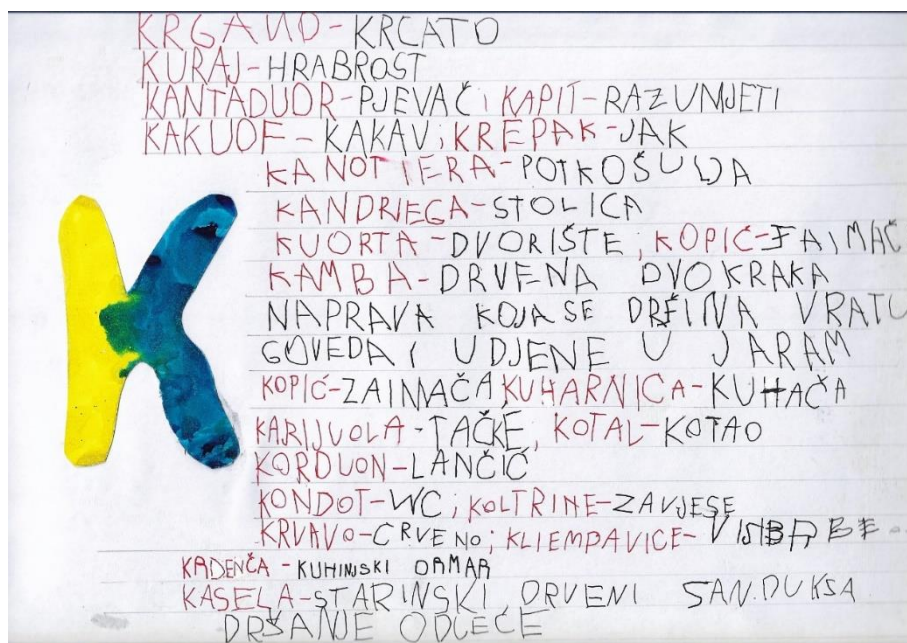 KRGANO-KRCATO
KURAJ-HRABROST
KANTADUOR-PJEVAČ; KAPIT-RAZUMJETI
KAKUOF-KAKAV; KREPAK-JAK
KANOTTERA-POTKOŠULJA
KANDRIEGA-STOLICA
KUORTA-DVORIŠTE; KOPIĆ-
KAMBA-DRVENA DVOKRAKA
NAPRAVA KOJA SE DRŽI NA VRATU
GOVEDA I UDJENE U JARAM
KOPIĆ-ZAIMAČA KUHARNICA-KUHAČA
KARIJVOLA-TAČKE, KOTAL-KOTAO
KORDUON-LANČIĆ
KONDOT-WC; KOLTRINE-ZAVJESE
KRVAVO-CRVENO; KLIEMPAVICE-
KADENČA-KUHINJSKI ORMAR
KASELA-STARINSKI DRVENI SANDUK SA
DRŠANJE ODEĆE
K